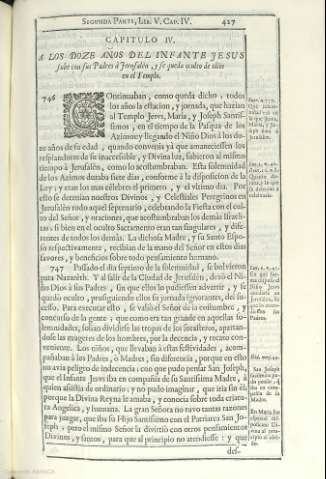 SEGUNDA PARTE, LIB. V. CAP. IV. 427
CAPITULO IV.
A LOS DOZE AÑOS DEL INFANTE JESUS
sube con sus Padres à Jerusalèn, y se queda oculto de ellos
en el Templo.
746 COntinuaban, como queda dicho, todos
los años la estacion, y jornada, que hazian
al Templo Jesvs, Maria, y Joseph Santis-
simos, en el tiempo de la Pasqua de los
Azimos; y llegando el Niño Dios à los do-
ze años de su edad, quando convenia yà que amaneciessen los
resplandores de su inaccessible, y Divina luz, subieron al mismo
tiempo à Jerusalèn, como lo acostumbraban. Esta solemnidad
de los Azimos duraba siete dias, conforme à la disposicion de la
Ley; y eran los mas celebres el primero, y el vltimo dia. Por
esto se detenian nuestros Divinos, y Celestiales Peregrinos en
Jerusalèn todo aquel septenario, celebrando la Fiesta con el cul-
to del Señor, y oraciones, que acostumbraban los demàs Israelí-
tas, si bien en el oculto Sacramento eran tan singulares, y dife-
rentes de todos los demàs. La dichosa Madre, y su Santo Espo-
so respectivamente, recibian de la mano del Señor en estos dias
favores, y beneficios sobre todo pensamiento humano.
747 Passado el dia septimo de la solemnidad, se bolvieron
para Nazareth. Y al salir de la Ciudad de Jerusalèn, dexò el Ni-
ño Dios à sus Padres, sin que ellos lo pudiessen advertir, y se
quedò oculto, prosiguiendo ellos su jornada ignorantes, del su-
cesso. Para executar esto, se valiò el Señor de la costumbre, y
concurso de la gente; que como era tan grande en aquellas so-
lemnidades, solian dividirse las tropas de los forasteros, apartan-
dose las mugeres de los hombres, por la decencia, y recato con-
veniente. Los niños, que llevaban à estas festividades, acom-
pañaban à los Padres, ò Madres, sin diferencia, porque en esto
no avia peligro de indecencia; con que pudo pensar San Joseph,
que el Infante Jesvs iba en compañia de su Santissima Madre, à
quien assistia de ordinario; y no pudo imaginar, que iria sin èl,
porque la Divina Reyna le amaba, y conocia sobre toda criatu-
ra Angelica, y humana. La gran Señora no tuvo tantas razones
para juzgar, que iba su Hijo Santissimo con el Patriarca San Jo-
seph; pero el mismo Señor la divirtiò con otros pensamientos
Divinos, y santos, para que al principio no atendiesse; y que
des-